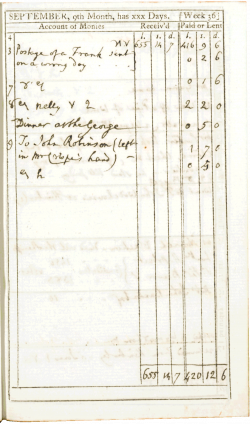 SEPTEMBER, 9th Month, has xxx Days. [Week 36]
Account of Monies Receiv'd Paid or Lent
l. s. d. l. s. d.
655 14 7 416 9 6
3 Postage of a Frank sent 0 2 6
on a wrong day
7 0 1 6
8 Nelly 2 2 2 0
Dinner at the George 0 5 0
9 To John Robinson (left 1 7 0
in Mr hand)
655 14 7 420 12 6